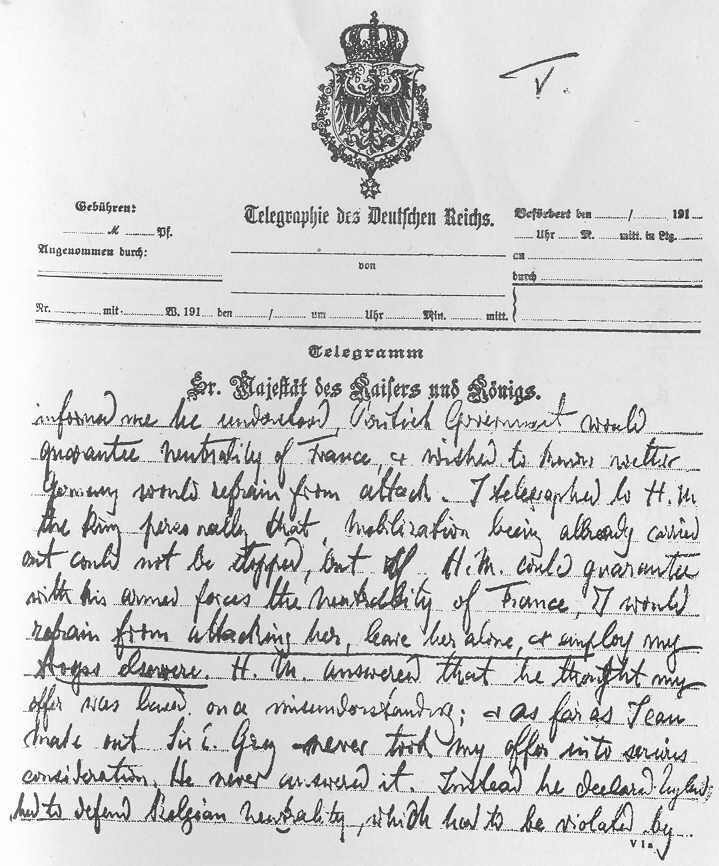 V.
Gebühren:
M Pf.
Angenommen durch:
Telegraphie des Deutschen Reichs.
von
Befördert den / 191
Uhr M. mitt. in Ltg.
an
durch
Nr. mit W. 191 den / um Uhr Min. mitt.
Telegramm
Sr. Majestät des Kaisers und Königs.
informed me he understood, British Government would
guarantee neutrality of France, & wished to know wether
Germany would refrain from attack. I telegraphed to H. M.
the King personally that, mobilization being allready carried
out could not be stopped, but if H.M. could guarantee
with his armed forces the neutrality of France, I would
refrain from attacking her, leave her alone, & employ my
troops elsewere. H. M. answered that he thought my
offer was based on a misunderstanding; & as far as I can
make out Sir E. Grey never took my offer into serious
consideration. He never answered it. Instead he declared England
had to defend Belgian neutrality, which had to be violated by
V 1a